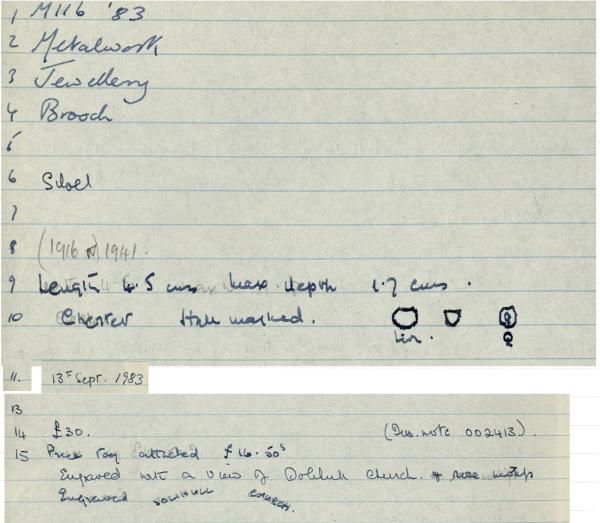 1 M116 '83
2 Metalwork
3 Jewellery
4 Brooch
5
6 Silver
7
8 (1916 or) 1941.
9 Length 4.5 cms max. depth 1.7 cms.
10 Chester Hall marked.
Lion.
11. 13th Sept. 1983
13
14 £30. (Des. note 002413).
15 Price Tag attached £16.50
Engraved with a view of Solihull Church.
Engraved SOLIHULL CHURCH.